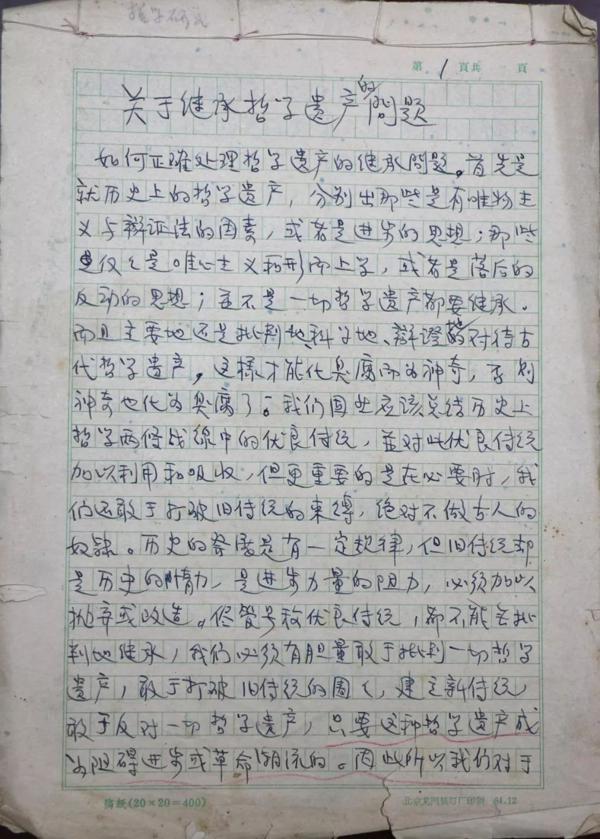 哲学研究
第 1 頁共 頁
关于继承哲学遗产的问题
如何正确处理哲学遗产的继承问题。首先是
就历史上的哲学遗产，分别出那些是有唯物主
义与辩证法的因素，或者是进步的思想；那些
是仅仅是唯心主义和形而上学，或者是落后的
反动的思想；并不是一切哲学遗产都要继承。
而且主要地还是批判地、科学地、辩證的对待古
代哲学遗产，这樣才能化臭腐而为神奇，否则
神奇也化为臭腐了。我们因此应该总结历史上
哲学两條战線中的优良传统，並对此优良传统
加以利用和吸收，但更重要的是在必要时，我
们还敢于打破旧传统的束缚，绝对不做古人的
奴隶。历史的發展是有一定規律，但旧传统却
是历史的惰力，是进步力量的阻力，必须加以
抛弃或改造。尽管号称优良传统，都不能无批
判地继承，我们必须有胆量敢于批判一切哲学
遗产，敢于打破旧传统的圈〻，建立新传统，
敢于反对一切哲学遗产，只要这种哲学遗产成
为阻碍进步或革命潮流的。因此所以我们对于
稿紙(20×20=400)
64.12